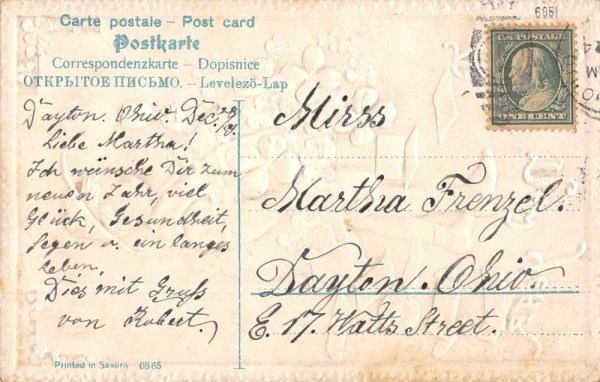 Carte postale – Post card
Postkarte
Correspondenzkarte – Dopisnice
ОТКРЫТОЕ ПИСЬМО. – Levelezö-Lap
Dayton. Ohio. Dec.
Liebe Martha!
Ich wünsche Dir zum
neuen Jahr, viel
Glück, Gesundheit,
Segen u. ein langes
Leben.
Dies mit Gruß
von Robert.
Printed in Saxony 0565
6051
U.S. POSTAGE
ONE CENT
Mirss
Martha Frenzel.
Dayton. Ohio.
E. 17. Watts Street.